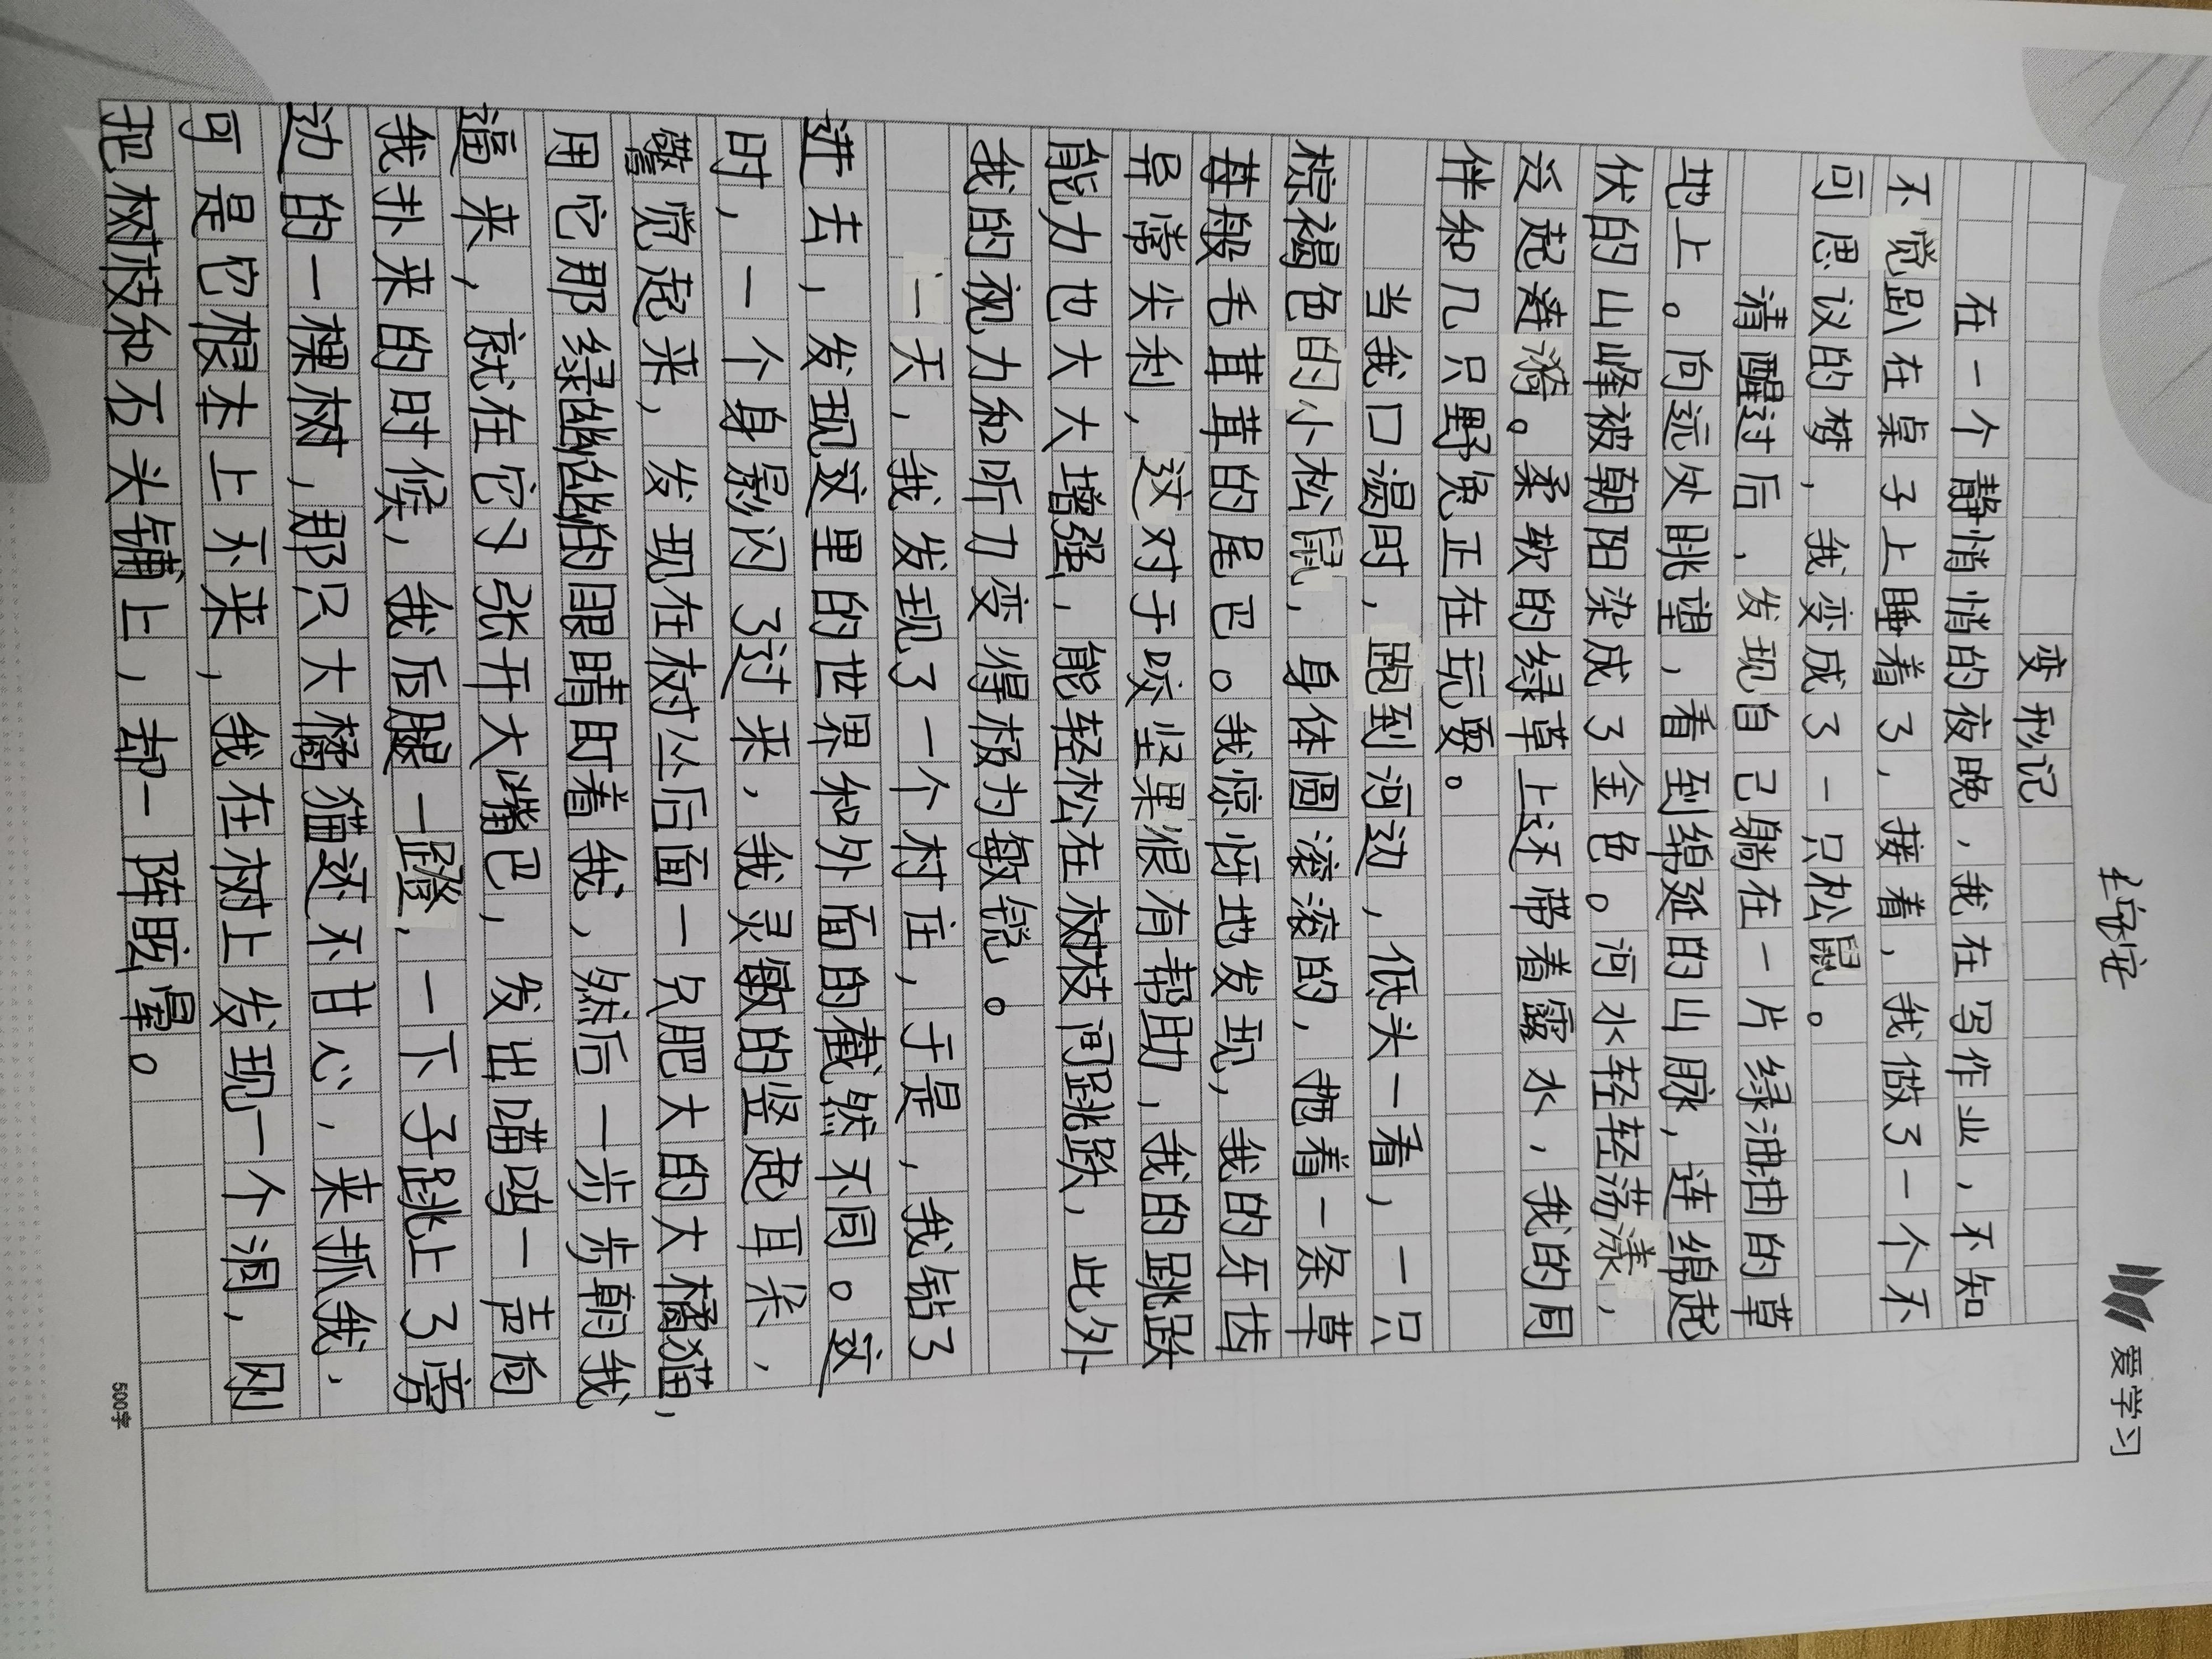 爱学习
变形记
在一个静悄悄的夜晚，我在写作业，不知
不觉趴在桌子上睡着了，接着，我做了一个不
可思议的梦，我变成了一只松鼠。
清醒过后，发现自己躺在一片绿油油的草
地上。向远处眺望，看到绵延的山脉，连绵起
伏的山峰被朝阳染成了金色。河水轻轻荡漾，
泛起涟漪。柔软的绿草上还带着露水，我的同
伴和几只野兔正在玩耍。
当我口渴时，跑到河边，低头一看，一只
棕褐色的小松鼠，身体圆滚滚的，拖着一条草
莓般毛茸茸的尾巴。我惊讶地发现，我的牙齿
异常尖利，这对于咬坚果很有帮助，我的跳跃
能力也大大增强，能轻松在树枝间跳跃，此外
我的视力和听力变得极为敏锐。
一天，我发现了一个村庄，于是，我钻了
进去，发现这里的世界和外面的截然不同。这
时，一个身影闪了过来，我灵敏的竖起耳朵，
警觉起来，发现在树丛后面一只肥大的大橘猫，
用它那绿幽幽的眼睛盯着我，然后一步步朝我
逼来，就在它刁张开大嘴巴，发出喵呜一声向
我扑来的时候，我后腿一蹬，一下子跳上了旁
边的一棵树，那只大橘猫还不甘心，来抓我，
可是它根本上不来，我在树上发现一个洞，刚
把树枝和石头铺上，却一阵眩晕。
500字